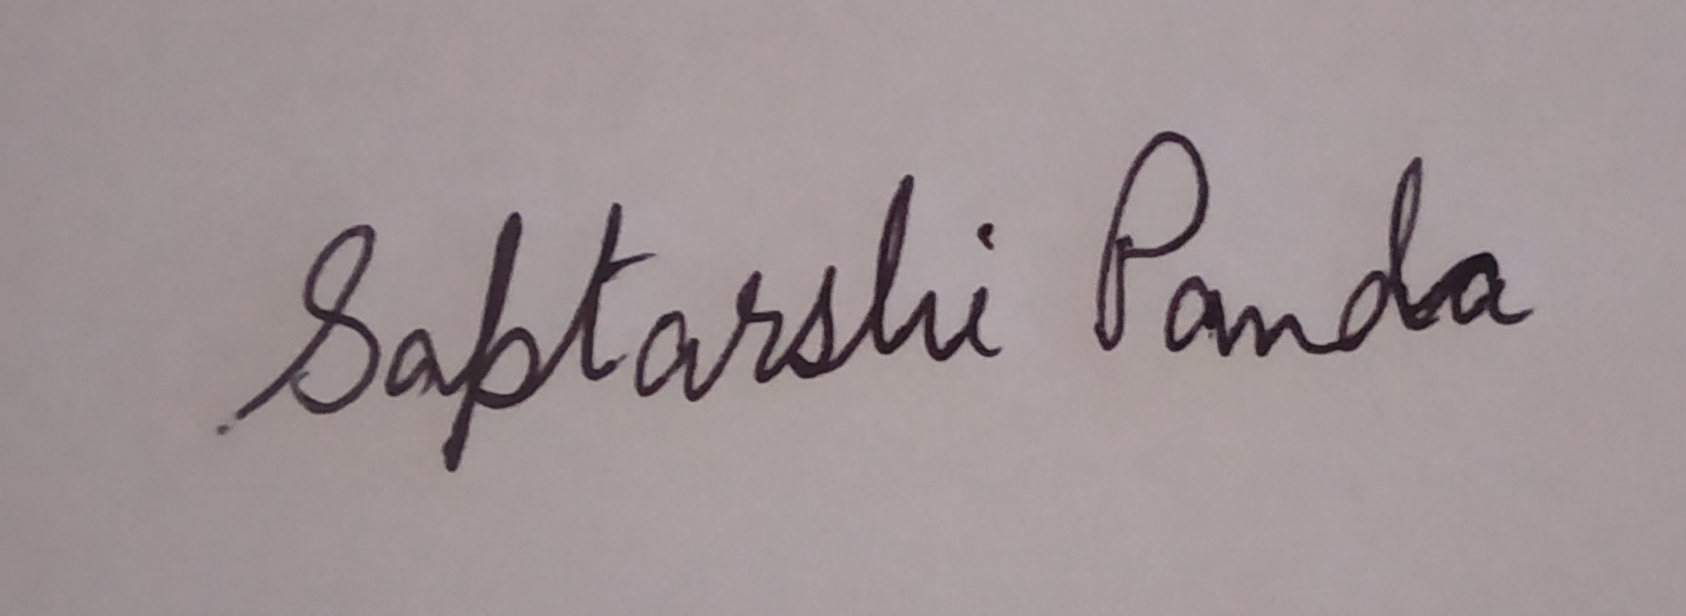 Saptarshi Panda